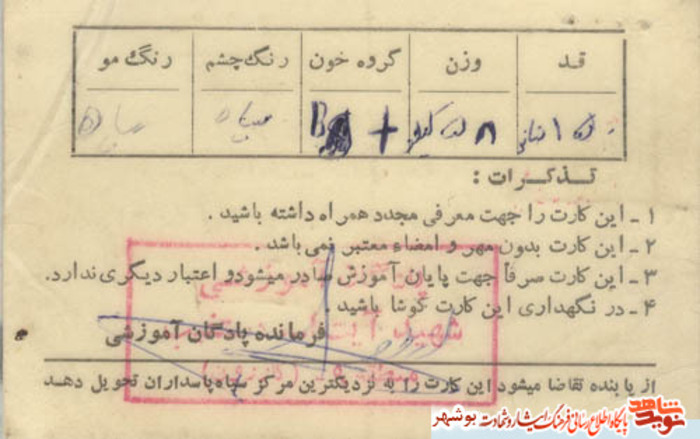 قد وزن گروه خون رنگ چشم رنگ مو
۵۸ کیلو B + سیاه سیاه
تذکرات :
۱ - این کارت را جهت معرفی مجدد همراه داشته باشید .
۲ - این کارت بدون مهر و امضاء معتبر نمی باشد .
۳ - این کارت صرفاً جهت پایان آموزش صادر میشود و اعتبار دیگری ندارد .
۴ - در نگهداری این کارت کوشا باشید .
فرمانده پادگان آموزشی
شهید آیت
از یابنده تقاضا میشود این کارت را به نزدیکترین مرکز سپاه پاسداران تحویل دهد
نوید شاهد
پایگاه اطلاع رسانی فرهنگ ایثار و شهادت بوشهر